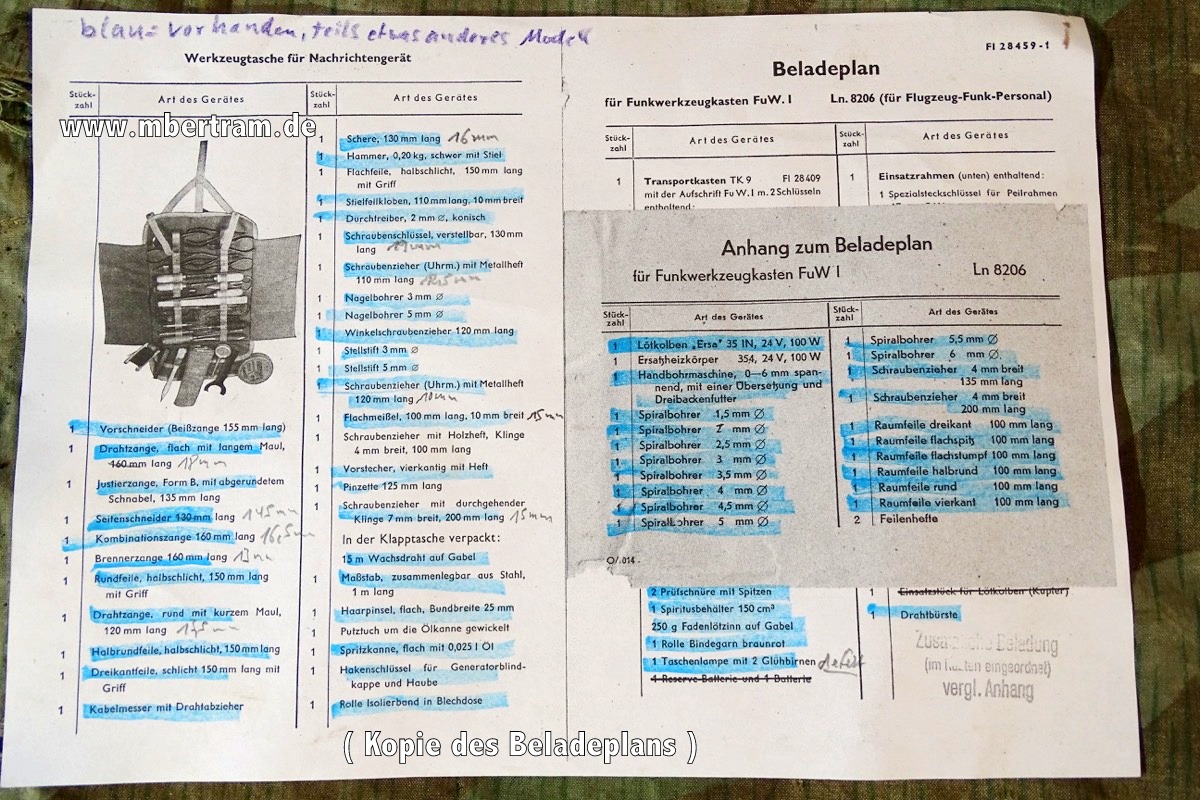 blau= vorhanden, teils etwas anderes Modell
Werkzeugtasche für Nachrichtengerät
Stück-
zahl
Art des Gerätes
www.mbertram.de
1 Vorschneider (Beißzange 155 mm lang)
1 Drahtzange, flach mit langem Maul,
160 mm lang 18mm
1 Justierzange, Form B, mit abgerundetem
Schnabel, 135 mm lang
1 Seitenschneider 130 mm lang 145mm
1 Kombinationszange 160 mm lang 16,5mm
1 Brennerzange 160 mm lang 13mm
1 Rundfeile, halbschlicht, 150 mm lang
mit Griff
1 Drahtzange, rund mit kurzem Maul,
120 mm lang
1 Halbrundfeile, halbschlicht, 150 mm lang
1 Dreikantfeile, schlicht 150 mm lang mit
Griff
1 Kabelmesser mit Drahtabzieher
Stück-
zahl
Art des Gerätes
1 Schere, 130 mm lang 16mm
1 Hammer, 0,20 kg, schwer mit Stiel
1 Flachfeile, halbschlicht, 150 mm lang
mit Griff
1 Stielfeilkloben, 110 mm lang, 10 mm breit
1 Durchtreiber, 2 mm ⌀, konisch
1 Schraubenschlüssel, verstellbar, 130 mm
lang
1 Schraubenzieher (Uhrm.) mit Metallheft
110 mm lang
1 Nagelbohrer 3 mm ⌀
1 Nagelbohrer 5 mm ⌀
1 Winkelschraubenzieher 120 mm lang
1 Stellstift 3 mm ⌀
1 Stellstift 5 mm ⌀
1 Schraubenzieher (Uhrm.) mit Metallheft
120 mm lang 10mm
1 Flachmeißel, 100 mm lang, 10 mm breit 15mm
1 Schraubenzieher mit Holzheft, Klinge
4 mm breit, 100 mm lang
1 Vorstecher, vierkantig mit Heft
1 Pinzette 125 mm lang
1 Schraubenzieher mit durchgehender
Klinge 7 mm breit, 200 mm lang 15mm
In der Klapptasche verpackt:
15 m Wachsdraht auf Gabel
1 Maßstab, zusammenlegbar aus Stahl,
1 m lang
1 Haarpinsel, flach, Bundbreite 25 mm
1 Putztuch um die Ölkanne gewickelt
1 Spritzkanne, flach mit 0,025 l Öl
1 Hakenschlüssel für Generatorblind-
kappe und Haube
1 Rolle Isolierband in Blechdose
Fl 28459-1
Beladeplan
für Funkwerkzeugkasten FuW. I Ln. 8206 (für Flugzeug-Funk-Personal)
Stück-
zahl
Art des Gerätes
Stück-
zahl
Art des Gerätes
1 Transportkasten TK 9 Fl 28409
mit der Aufschrift FuW. I m. 2 Schlüsseln
enthaltend:
1 Einsatzrahmen (unten) enthaltend:
1 Spezialsteckschlüssel für Peilrahmen
Anhang zum Beladeplan
für Funkwerkzeugkasten FuW I Ln 8206
Stück-
zahl
Art des Gerätes
Stück-
zahl
Art des Gerätes
1 Lötkolben „Ersa" 35 IN, 24 V, 100 W
1 Ersatzheizkörper 354, 24 V, 100 W
1 Handbohrmaschine, 0—6 mm span-
nend, mit einer Übersetzung und
Dreibackenfutter
1 Spiralbohrer 1,5 mm ⌀
1 Spiralbohrer 2 mm ⌀
1 Spiralbohrer 2,5 mm ⌀
1 Spiralbohrer 3 mm ⌀
1 Spiralbohrer 3,5 mm ⌀
1 Spiralbohrer 4 mm ⌀
1 Spiralbohrer 4,5 mm ⌀
1 Spiralbohrer 5 mm ⌀
1 Spiralbohrer 5,5 mm ⌀
1 Spiralbohrer 6 mm ⌀.
1 Schraubenzieher 4 mm breit
135 mm lang
1 Schraubenzieher 4 mm breit
200 mm lang
1 Raumfeile dreikant 100 mm lang
1 Raumfeile flachspitz 100 mm lang
1 Raumfeile flachstumpf 100 mm lang
1 Raumfeile halbrund 100 mm lang
1 Raumfeile rund 100 mm lang
1 Raumfeile vierkant 100 mm lang
2 Feilenhefte
O/.014.
2 Prüfschnüre mit Spitzen
1 Spiritusbehälter 150 cm³
250 g Fadenlötzinn auf Gabel
1 Rolle Bindegarn braunrot
1 Taschenlampe mit 2 Glühbirnen defekt
4 Reserve-Batterie und 1 Batterie
1 Einsatzstück für Lötkolben (Kupfer)
1 Drahtbürste
Zusätzliche Beladung
(im Kasten eingeordnet)
vergl. Anhang
( Kopie des Beladeplans )